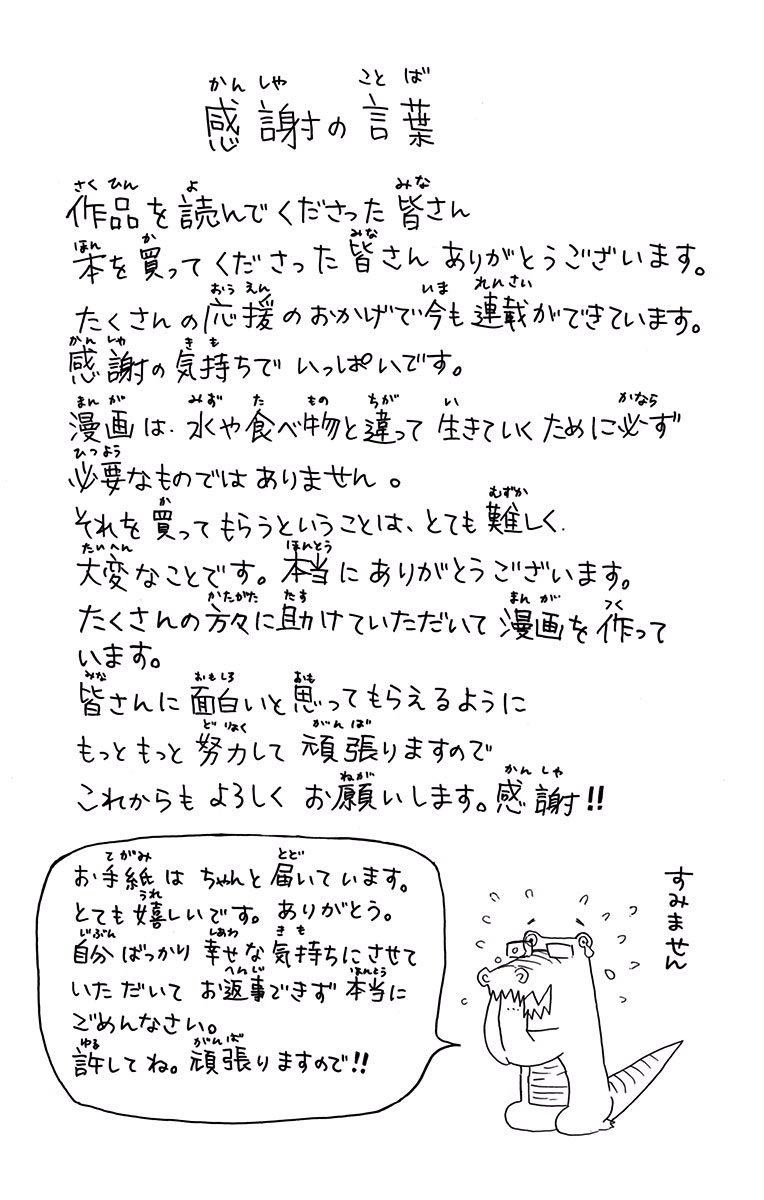 感謝の言葉
作品を読んでくださった皆さん
本を買ってくださった皆さん ありがとうございます。
たくさんの応援のおかげで今も連載ができています。
感謝の気持ちで いっぱいです。
漫画は、水や食べ物と違って 生きていくために必ず
必要なものではありません。
それを買ってもらうということは、とても難しく、
大変なことです。本当にありがとうございます。
たくさんの方々に助けていただいて漫画を作って
います。
皆さんに面白いと思ってもらえるように
もっともっと努力して頑張りますので
これからもよろしくお願いします。感謝!!
お手紙はちゃんと届いています。
とても嬉しいです。ありがとう。
自分ばっかり幸せな気持ちにさせて
いただいてお返事できず本当に
ごめんなさい。
許してね。頑張りますので!!
すみません